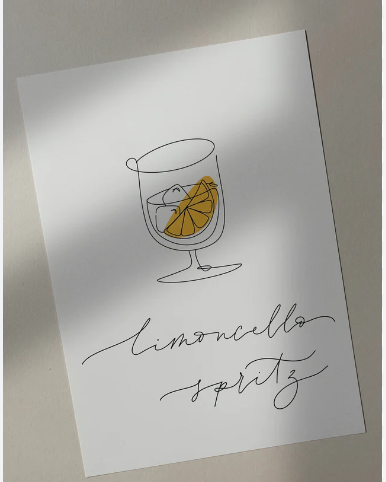 limoncello
spritz